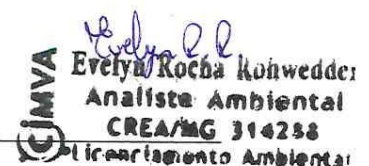 Evelyn R. R.
CIMVA
Evelyn Rocha Rohwedder
Analista Ambiental
CREA/MG 314238
Licenciamento Ambiental